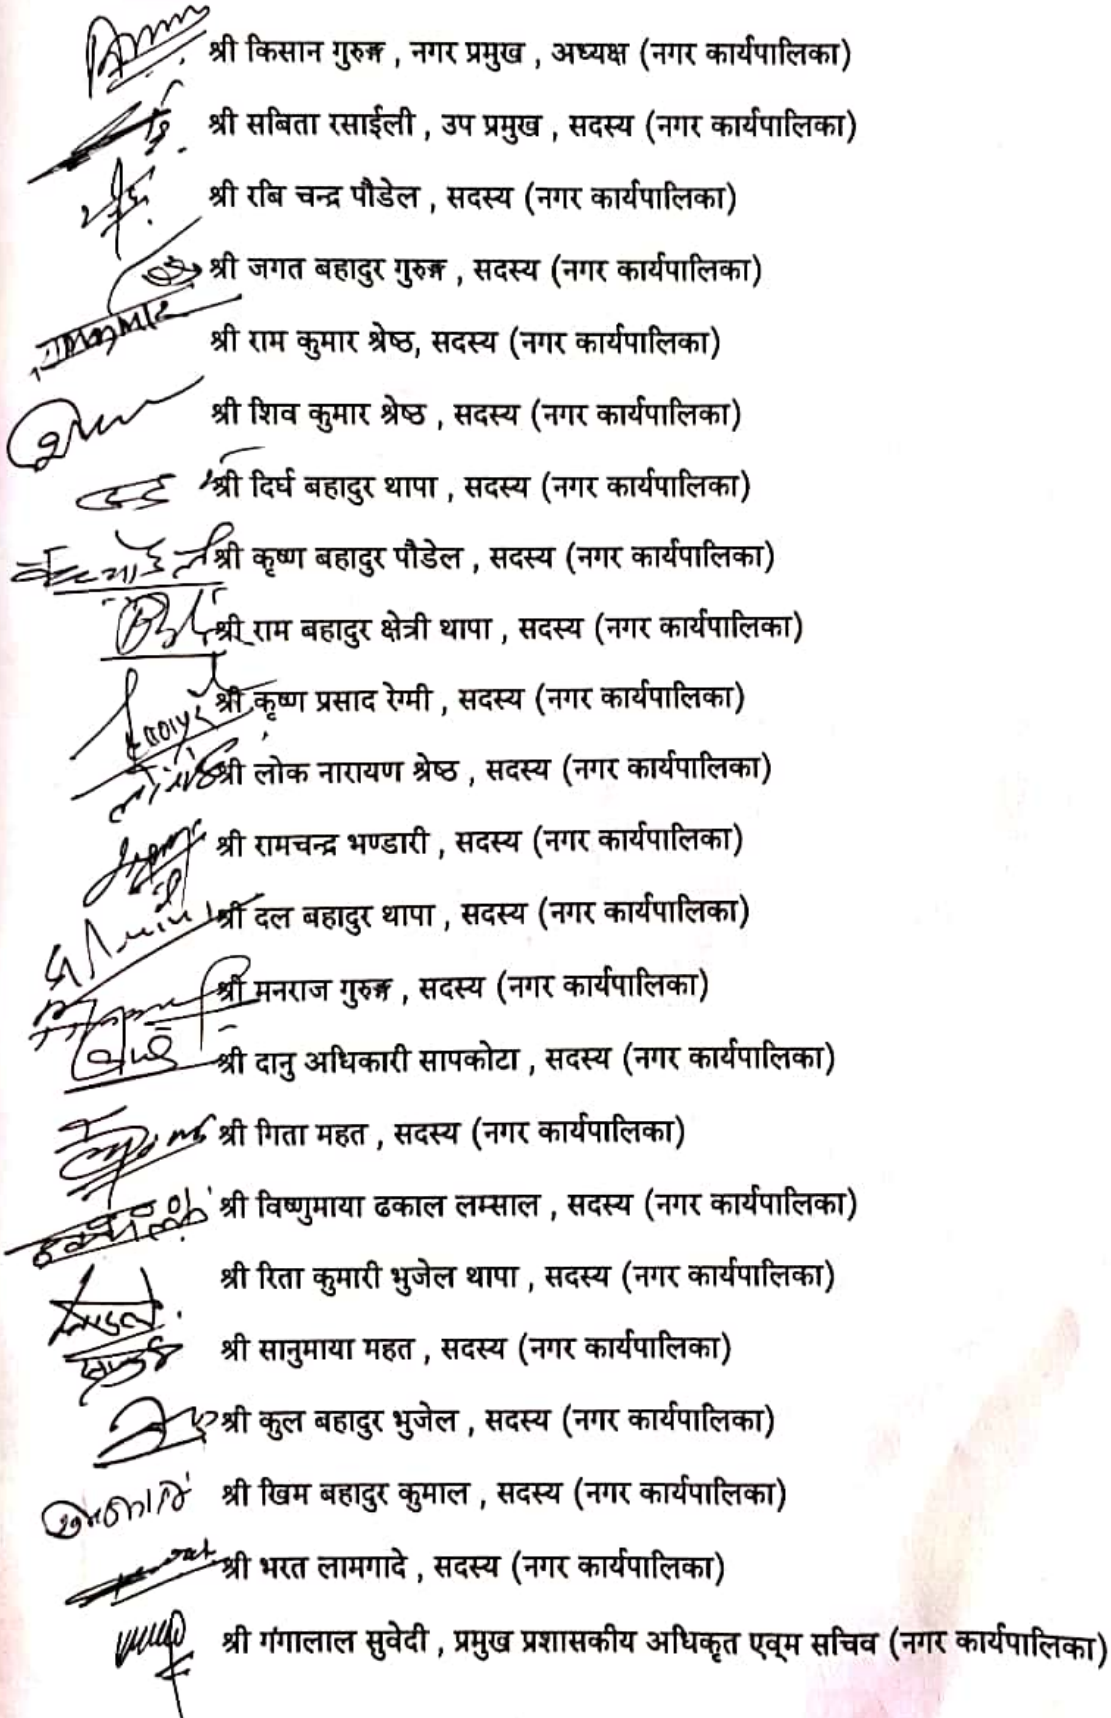 श्री किसान गुरुङ्ग , नगर प्रमुख , अध्यक्ष (नगर कार्यपालिका)
श्री सबिता रसाईली , उप प्रमुख , सदस्य (नगर कार्यपालिका)
श्री रबि चन्द्र पौडेल , सदस्य (नगर कार्यपालिका)
श्री जगत बहादुर गुरुङ्ग , सदस्य (नगर कार्यपालिका)
श्री राम कुमार श्रेष्ठ, सदस्य (नगर कार्यपालिका)
श्री शिव कुमार श्रेष्ठ , सदस्य (नगर कार्यपालिका)
श्री दिर्घ बहादुर थापा , सदस्य (नगर कार्यपालिका)
श्री कृष्ण बहादुर पौडेल , सदस्य (नगर कार्यपालिका)
श्री राम बहादुर क्षेत्री थापा , सदस्य (नगर कार्यपालिका)
श्री कृष्ण प्रसाद रेग्मी , सदस्य (नगर कार्यपालिका)
श्री लोक नारायण श्रेष्ठ , सदस्य (नगर कार्यपालिका)
श्री रामचन्द्र भण्डारी , सदस्य (नगर कार्यपालिका)
श्री दल बहादुर थापा , सदस्य (नगर कार्यपालिका)
श्री मनराज गुरुङ्ग , सदस्य (नगर कार्यपालिका)
श्री दानु अधिकारी सापकोटा , सदस्य (नगर कार्यपालिका)
श्री गिता महत , सदस्य (नगर कार्यपालिका)
श्री विष्णुमाया ढकाल लम्साल , सदस्य (नगर कार्यपालिका)
श्री रिता कुमारी भुजेल थापा , सदस्य (नगर कार्यपालिका)
श्री सानुमाया महत , सदस्य (नगर कार्यपालिका)
श्री कुल बहादुर भुजेल , सदस्य (नगर कार्यपालिका)
श्री खिम बहादुर कुमाल , सदस्य (नगर कार्यपालिका)
श्री भरत लामगादे , सदस्य (नगर कार्यपालिका)
श्री गंगालाल सुवेदी , प्रमुख प्रशासकीय अधिकृत एव्म सचिव (नगर कार्यपालिका)